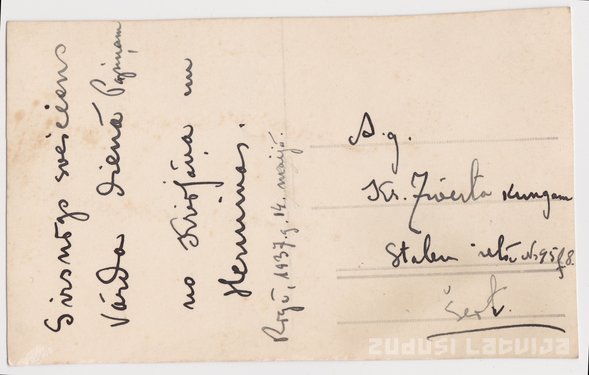 Sirsnīgs sveiciens
Vārda dienā Papiņam
no Krišjāņa un
Hermīnas.
Rīgā, 1937.g. 14. maijā.
A.g.
Kr. Zīverta kungam
Stabu ielā № 95
Šeit.
zudusi Latvija